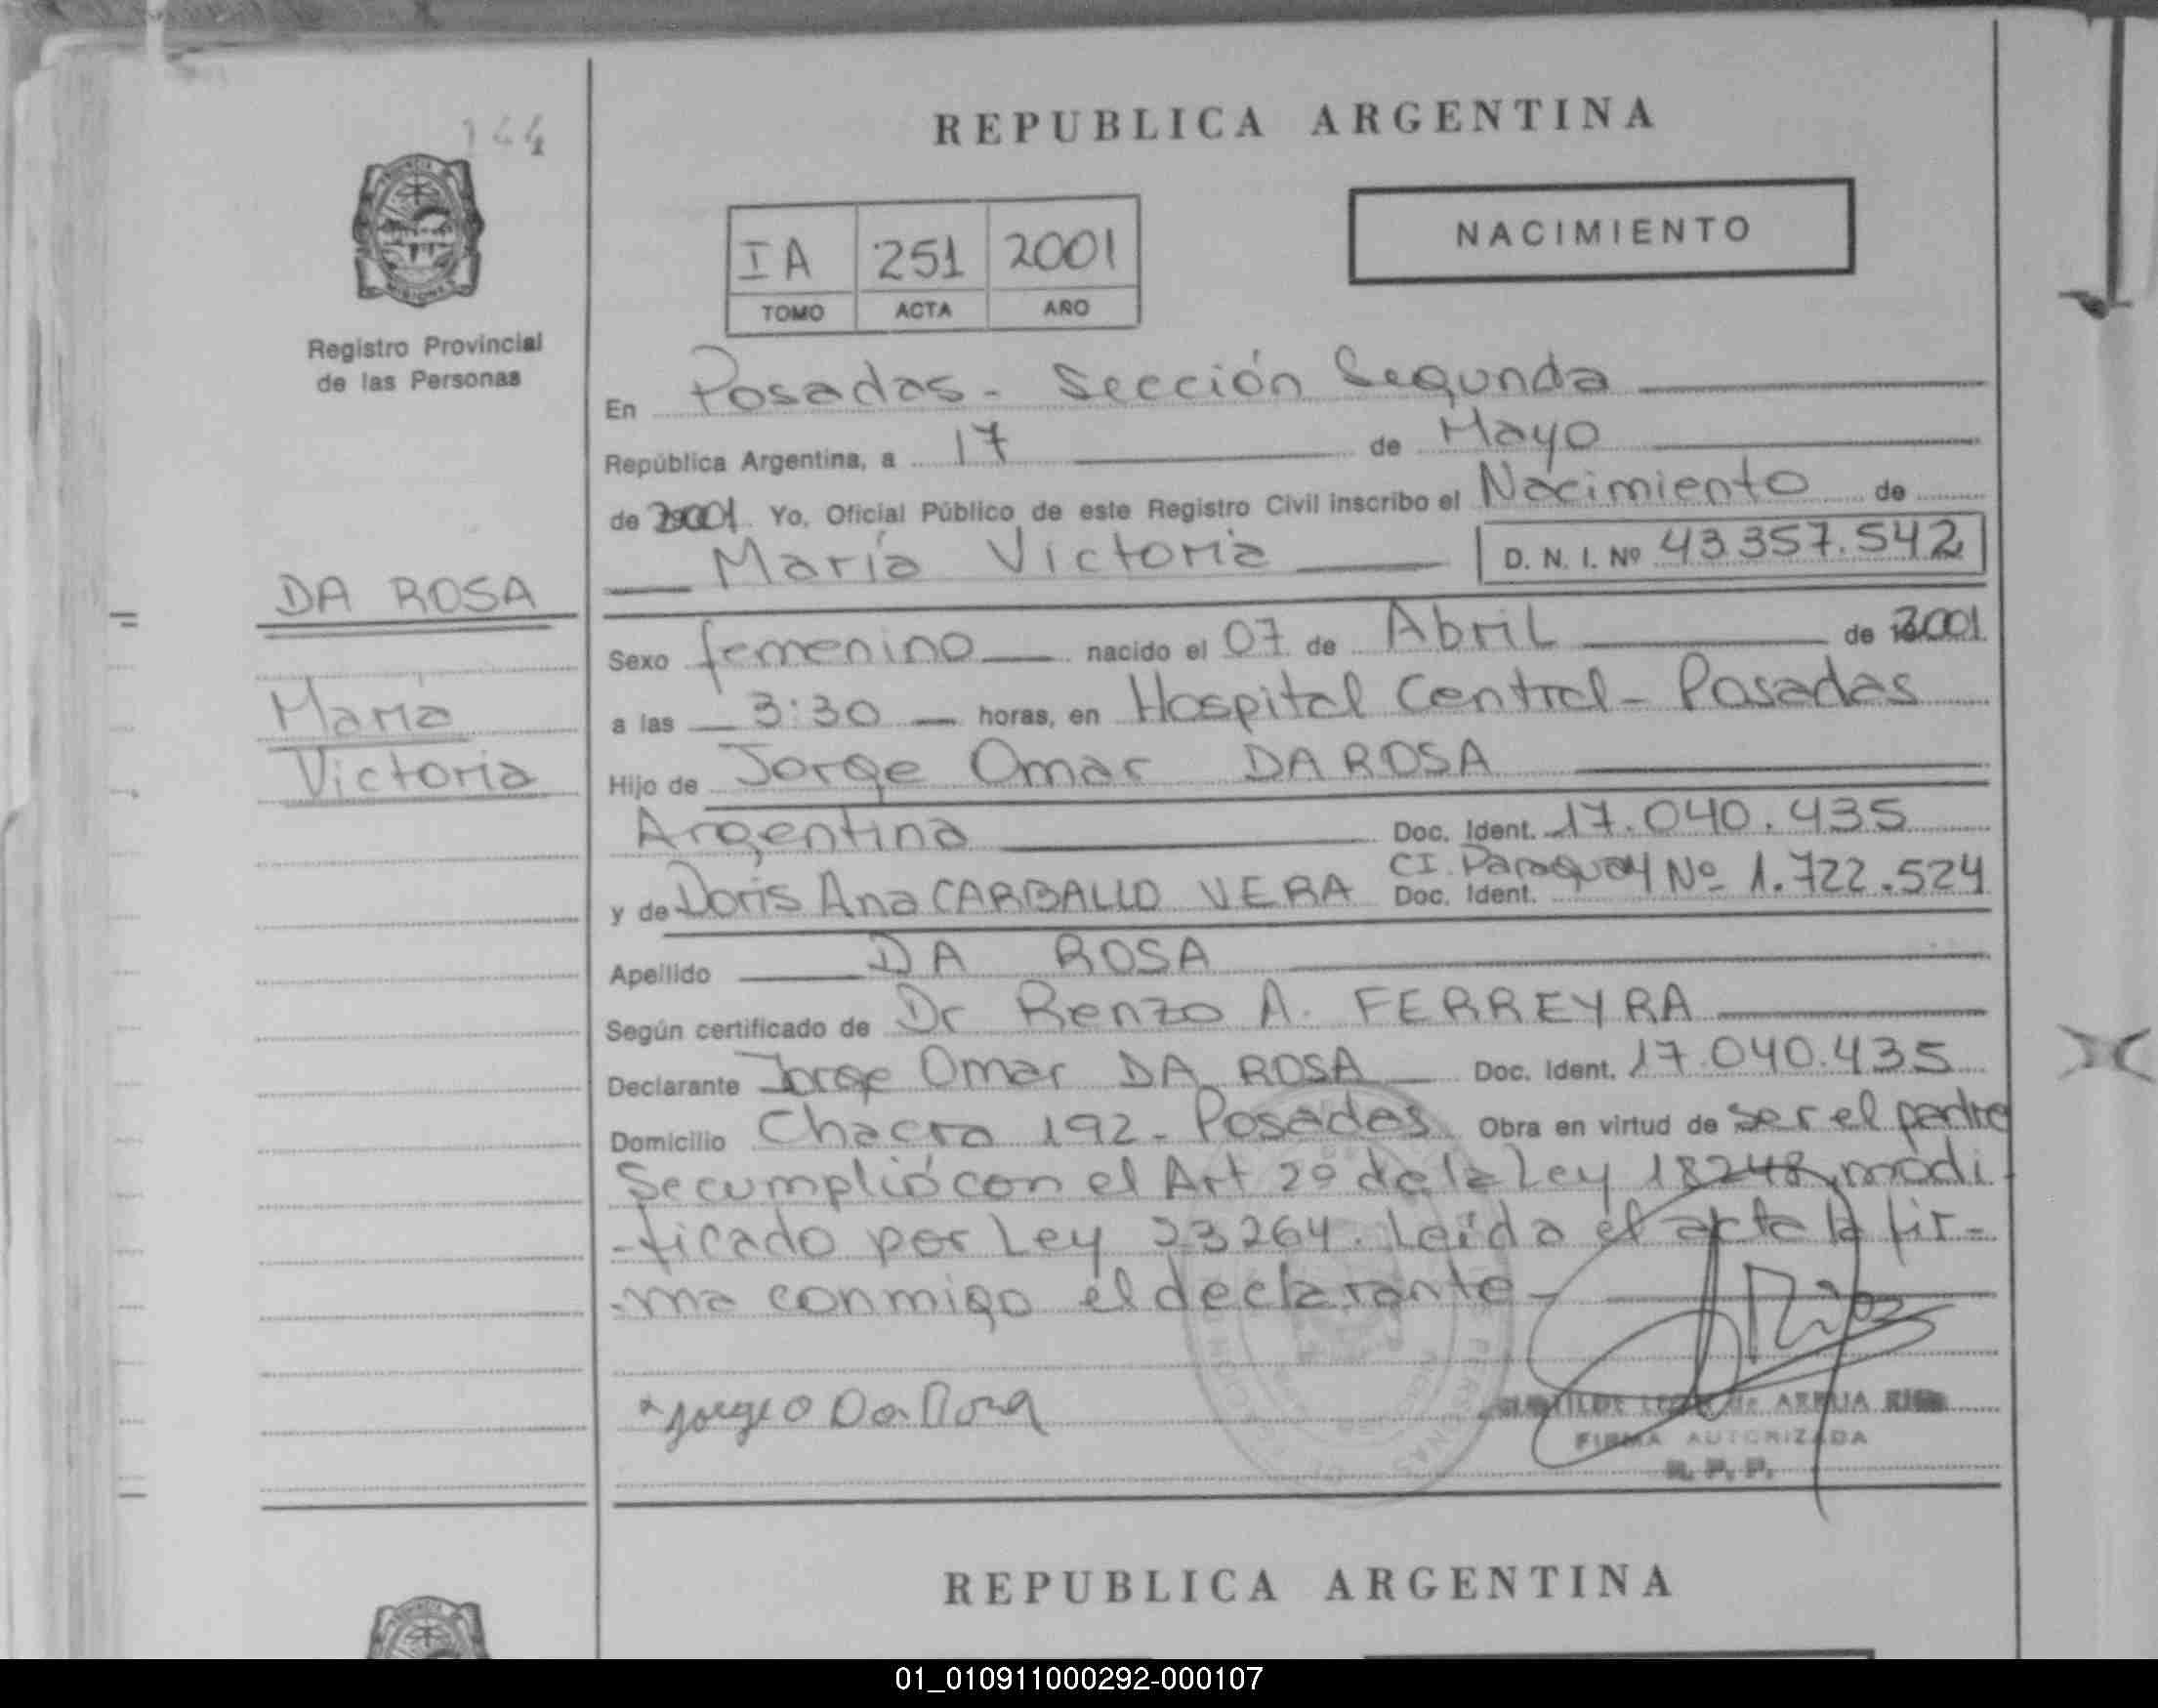 144
REPUBLICA ARGENTINA
IA 251 2001
TOMO ACTA AÑO
NACIMIENTO
MISIONES
Registro Provincial
de las Personas
En Posadas - Sección Segunda
República Argentina, a 17 de Mayo
de 2001 Yo, Oficial Público de este Registro Civil inscribo el Nacimiento de
María Victoria D. N. I. Nº 43.357.542
DA ROSA
María
Victoria
Sexo femenino nacido el 07 de Abril de 2001
a las 3:30 horas, en Hospital Central - Posadas
Hijo de Jorge Omar DA ROSA
Argentina Doc. Ident. 17.040.435
CI. Paraguay Nº 1.722.524
y de Doris Ana CARBALLO VERA Doc. Ident.
Apellido DA ROSA
Según certificado de Dr Renzo A. FERREYRA
Declarante Jorge Omar DA ROSA Doc. Ident. 17.040.435
Domicilio Chacra 192 - Posadas Obra en virtud de ser el padre
Se cumplió con el Art 2º de la Ley 18248, modi
-ficado por Ley 23264. Leída el acta la fir-
-ma conmigo el declarante -
Jorge O Da Rosa
de ARRUA
FIRMA AUTORIZADA
R. P. P.
REPUBLICA ARGENTINA
01_010911000292-000107